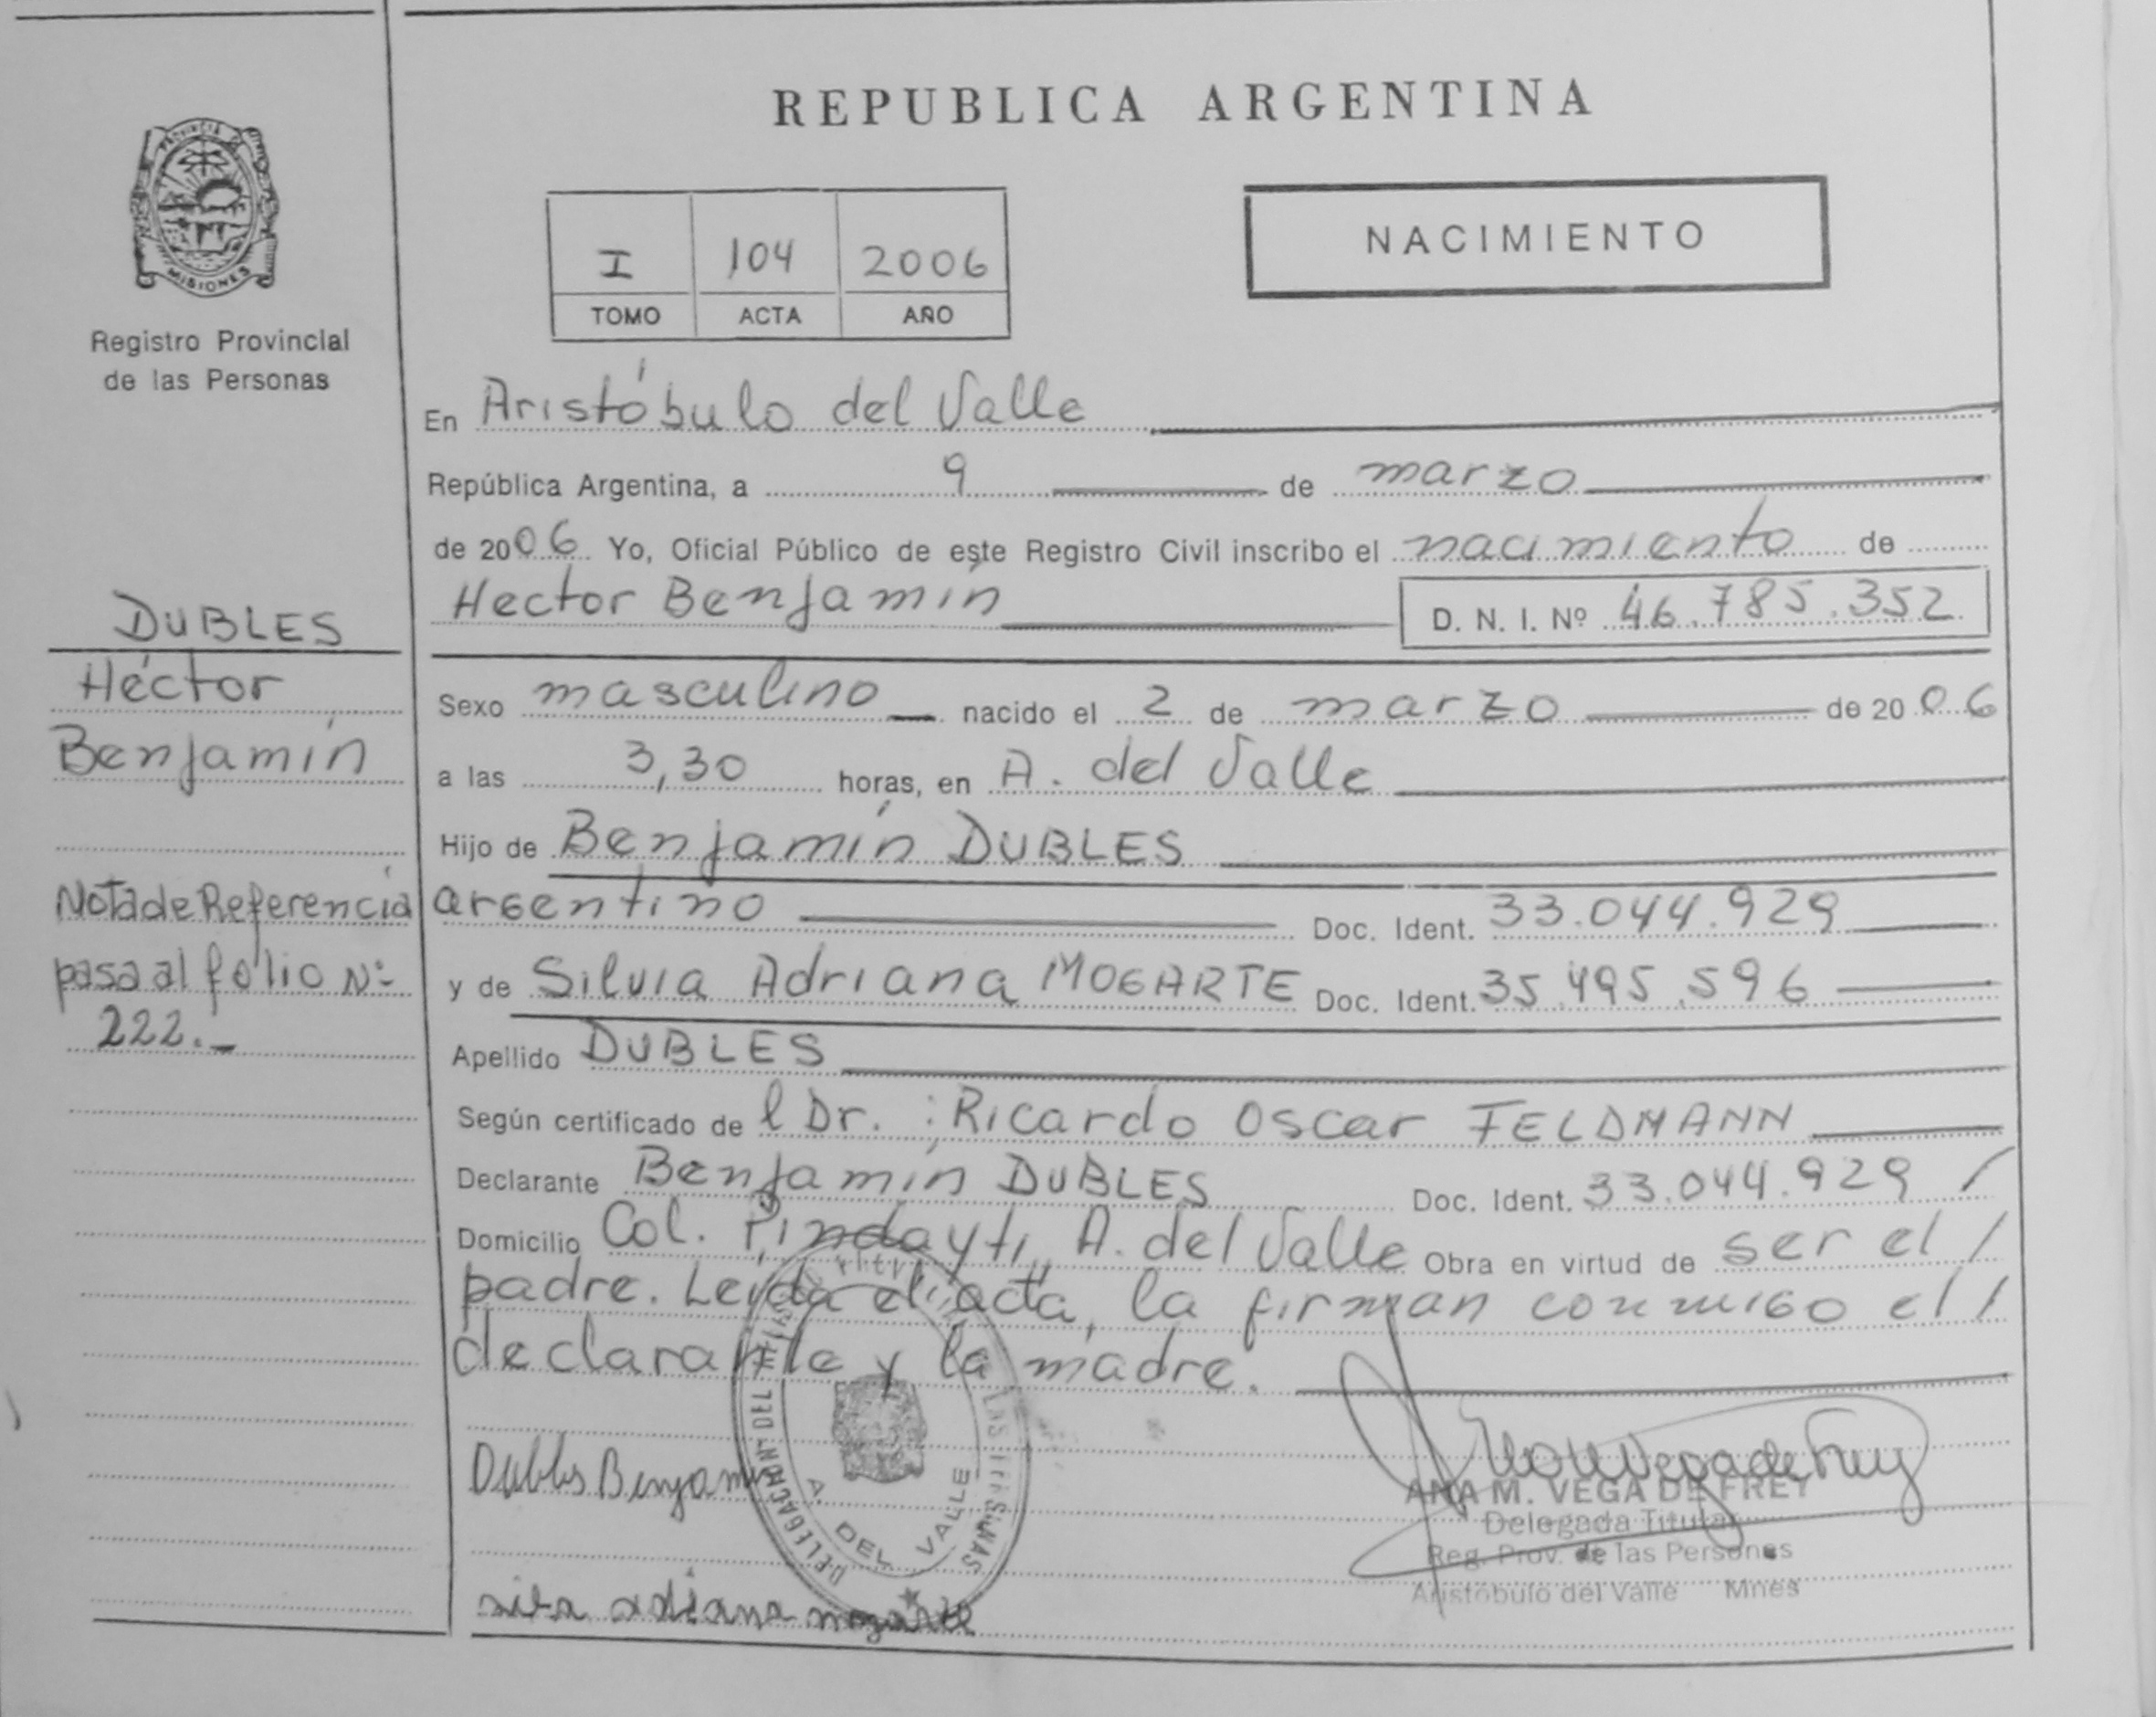 REPUBLICA ARGENTINA
PROVINCIA DE
MISIONES
Registro Provincial
de las Personas
NACIMIENTO
I 104 2006
TOMO ACTA AÑO
DUBLES
Héctor
Benjamín
Nota de Referencia
pasa al folio Nº
222.-
En Aristóbulo del Valle
República Argentina, a 9 de marzo
de 2006 Yo, Oficial Público de este Registro Civil inscribo el nacimiento de
Hector Benjamín D. N. I. Nº 46.785.352
Sexo masculino nacido el 2 de marzo de 2006
a las 3,30 horas, en A. del Valle
Hijo de Benjamín DUBLES
argentino Doc. Ident. 33.044.929
y de Silvia Adriana MOGARTE Doc. Ident. 35.495.596
Apellido DUBLES
Según certificado de l Dr. : Ricardo Oscar FELDMANN
Declarante Benjamín DUBLES Doc. Ident. 33.044.929 /
Domicilio Col. Pindayti, A. del Valle Obra en virtud de ser el /
padre. Leída el acta, la firman conmigo el /
declarante y la madre.
Dubles Benjamin
adriana mogarte
A. DEL VALLE
ANA M. VEGA DE FREY
Delegada Titular
Reg. Prov. de las Personas
Aristóbulo del Valle Mnes